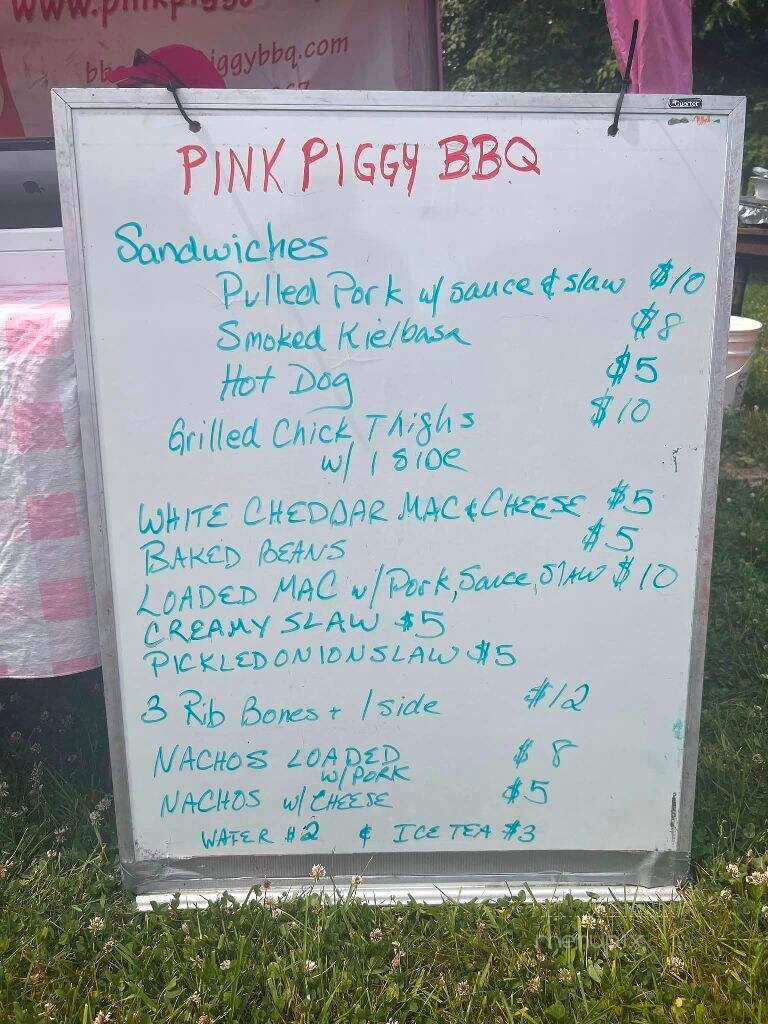 www.pinkpiggy
iggybbq.com
Quartet
PINK PIGGY BBQ
Sandwiches
Pulled Pork w/ sauce & slaw $10
Smoked Kielbasa $8
Hot Dog $5
Grilled Chick Thighs $10
w/ 1 SIDE
WHITE CHEDDAR MAC & CHEESE $5
BAKED BEANS $5
LOADED MAC w/ Pork, Sauce, SLAW $10
CREAMY SLAW $5
PICKLED ONION SLAW $5
3 Rib Bones + 1 side $12
NACHOS LOADED $8
W/ PORK
NACHOS W/ CHEESE $5
WATER $2 & ICE TEA $3
menupix